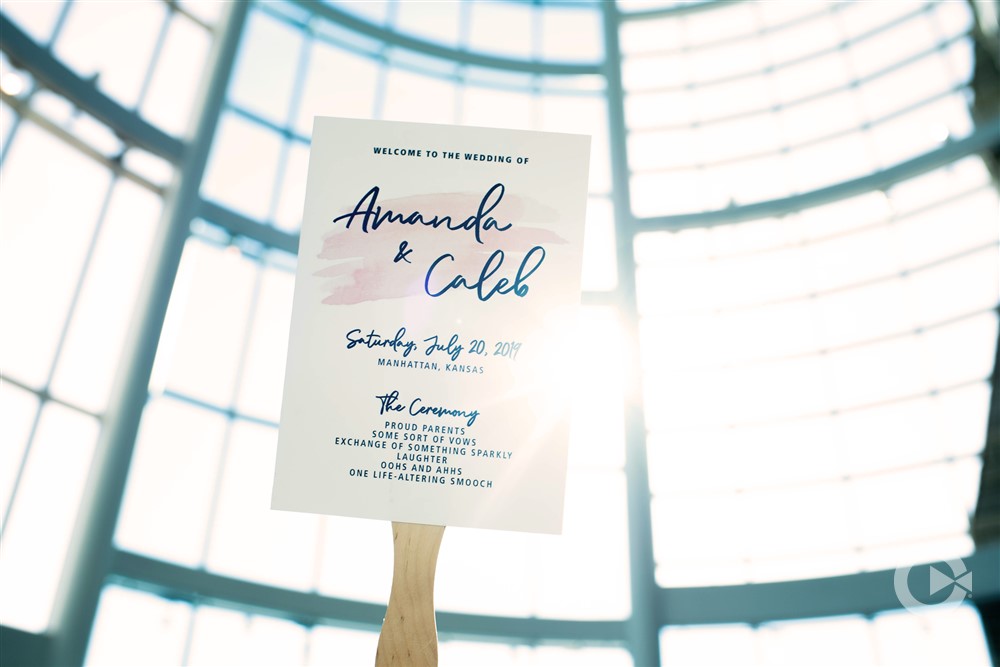 WELCOME TO THE WEDDING OF
Amanda
&
Caleb
Saturday, July 20, 2019
MANHATTAN, KANSAS
The Ceremony
PROUD PARENTS
SOME SORT OF VOWS
EXCHANGE OF SOMETHING SPARKLY
LAUGHTER
OOHS AND AHHS
ONE LIFE-ALTERING SMOOCH